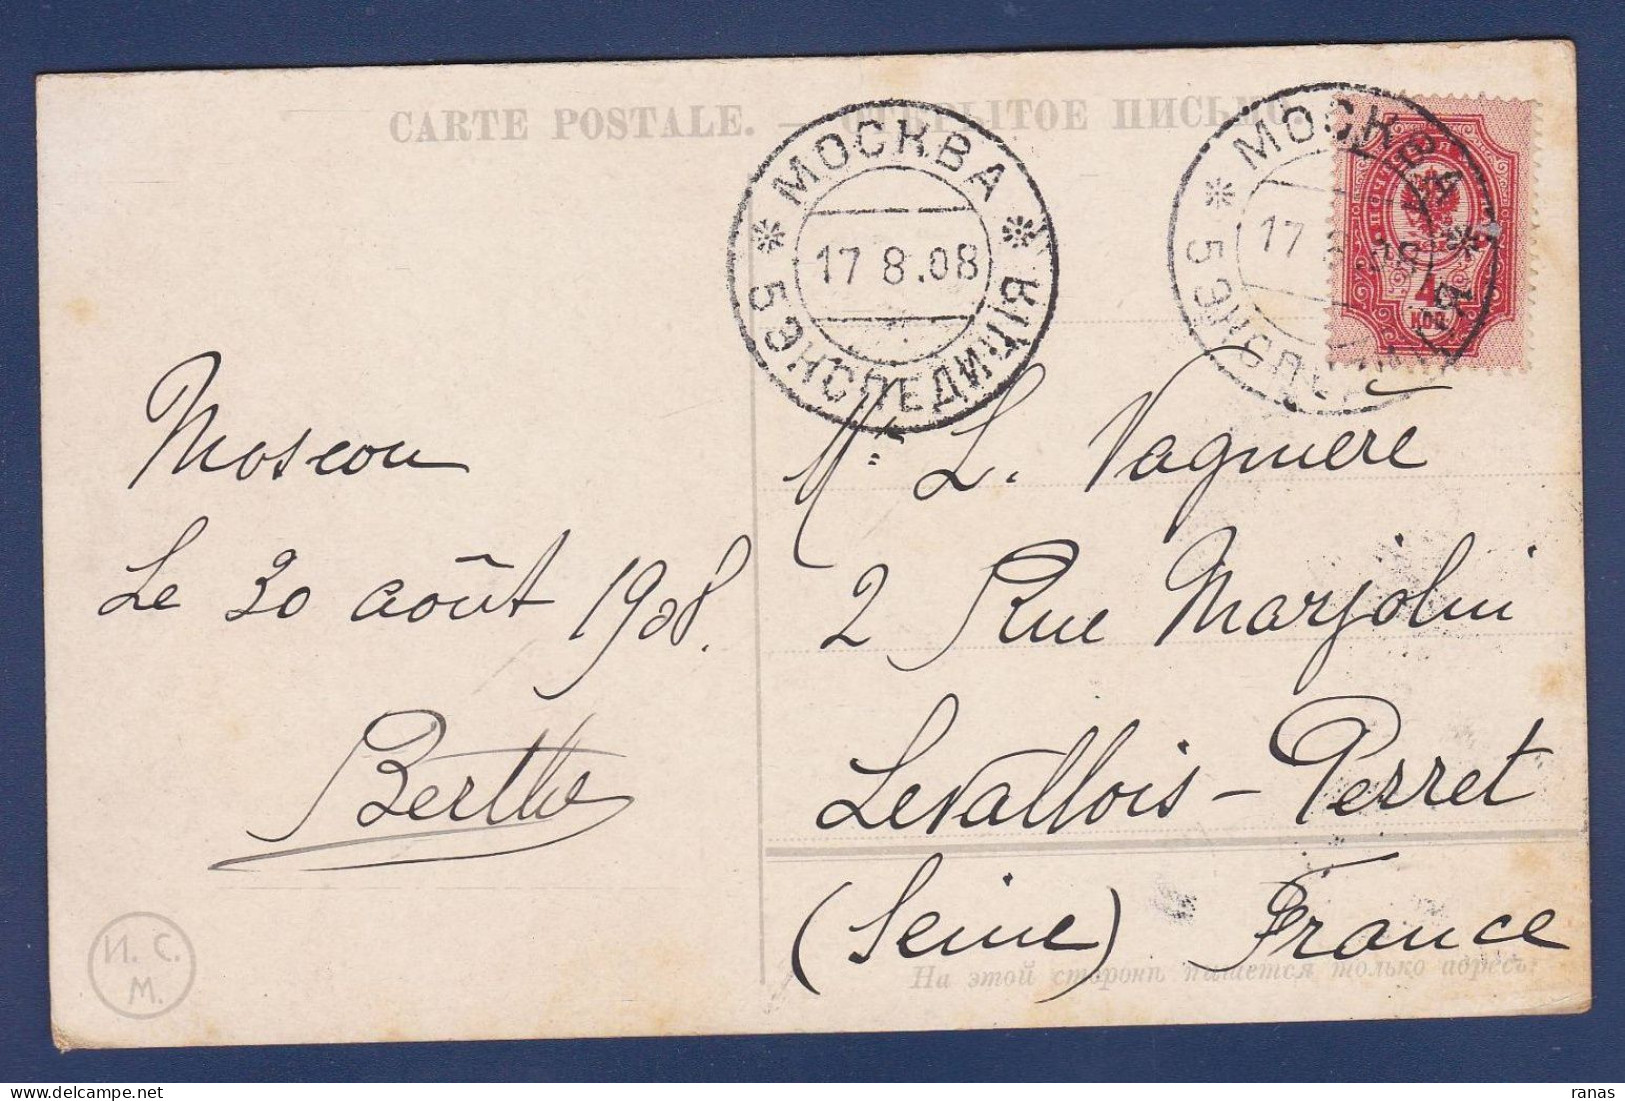 CARTE POSTALE. — ОТКРЫТОЕ ПИСЬМО.
МОСКВА
17 8.08
5 ЭКСПЕДИЦІЯ
МОСКВА
17 8 08
5 ЭКСПЕДИЦІЯ
4
КОП
Moscou
Le 30 août 1908.
Berthe
Mr. L. Vagnière
2 Rue Marjolin
Levallois-Perret
(Seine) France
На этой сторонѣ пишется только адресъ.
И. С.
М.
ranas